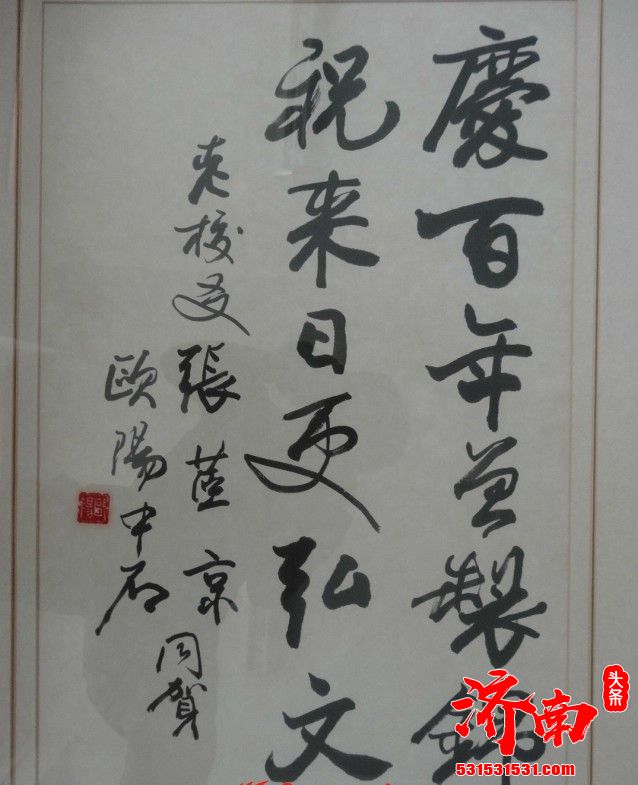 慶百年曾製錦
祝来日更弘文
老校友張茝京
歐陽中石
同賀
济南
头条
531531531.com